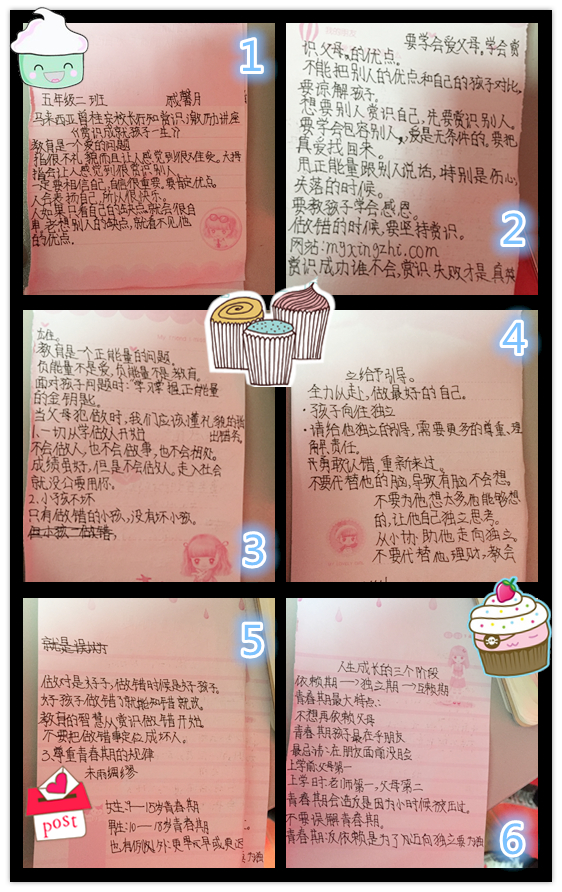 1
五年级二班 戚馨月
马来西亚尊桂荣校长告知赏识(激励)讲座
《赏识成就孩子一生》
教育是一个爱的问题
指很不礼貌而且让人感觉到很不佳矣。大拇
指会让人感觉到很赏识别人
一定要相信自己,自信很重要。要肯定优点。
人会表扬自己,所以很快乐。
人如果只看自己的缺缺点,就会很自
卑,老想别人的缺点,就看不见他
的优点.
2
要学会爱父母。学会赏
识父母,的优点。
不能把别人的优点和自己的孩子对比,
要谅解孩子。
想要别人赏识自己,先要赏识别人。
要学会包容别人,爱是无条件的。要把
真爱找回来。
用正能量跟别人说话,特别是伤心,
失落的时候。
要教孩子学会感恩。
做错的时候,要坚持赏识。
网站:myxingzhi.com
赏识成功谁不会,赏识失败才是真英
3
雄。
教育是一个正能量的问题。
负能量不是爱,负能量不是教育。
面对孩子问题时:学习掌握正能量
的金钥匙。
当父母犯做时,我们应该懂礼貌的指
出错来。
1.一切从学做人开始
不会做人,也不会做事,也不会相处。
成绩虽好,但是不会做人。走入社会
就没公司用你。
2.小孩不坏
只有做错的小孩,没有坏小孩。
但小孩一做错,
4
立给予引导。
全力从赴,做最好的自己。
·孩子向往独立
·请给他独立的引导,需要更多的尊重、理
解、责任。
勇敢认错,重新来过。
不要代替他的脑,导致有脑不会想。
不要为他想太多,他能够想
的,让他自己独立思考。
从小协助他走向独立。
不要代替他理财,教会
5
就是误认
做对是好子,做错时候是好孩子。
好孩子做错了就能知错就改。
教育的智慧从赏识做错开始
不要把做错事定位成坏人。
3.尊重青春期的规律
未雨绸缪
女生:9—18岁青春期
男性:10—18岁青春期
也有例外:更早或早或更迟
post
6
人生成长的三个阶段
依赖期→独立期→互赖期
青春期最大特点:
不想再依赖父母
青春期孩子最在乎朋友
最忌讳:在朋友面前没面子
上学前:父母第一
上学时:老师第一,父母第二
青春期会造反是因为小时候被压过。
不要误解青春期。
青春期没依赖是为了迈向独立